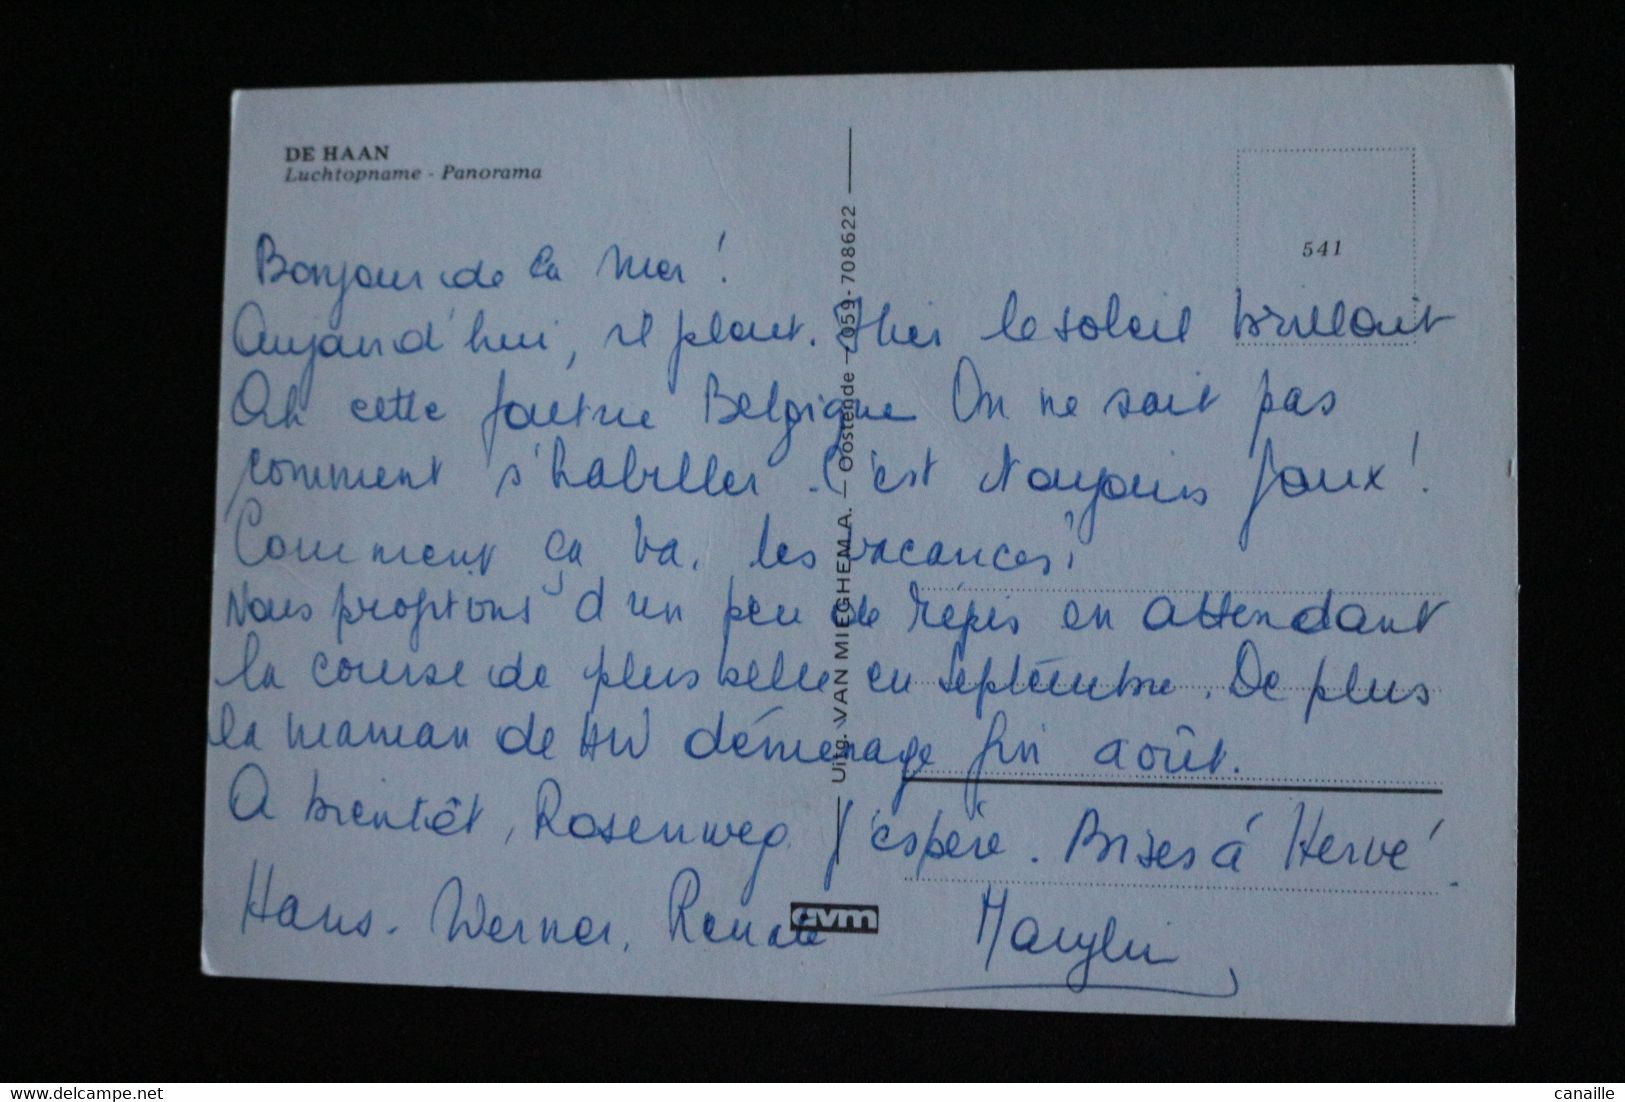 DE HAAN
Luchtopname - Panorama
541
Uitg. VAN MIEGHEM A. - Oostende - 059-708622
Bonjour de la mer!
Aujourd'hui, il pleut. Hier le soleil brillait
Ah cette foutue Belgique On ne sait pas
comment s'habiller. C'est toujours faux!
Comment ça va, les vacances?
Nous profitons d'un peu de répis en attendant
la course de plus belle en septembre. De plus
la maman de HW déménage fin août.
A bientôt, Rosenweg, j'espère. Bises à Hervé.
Hans-Werner, Renate
cvm
delcampe.net
canaille